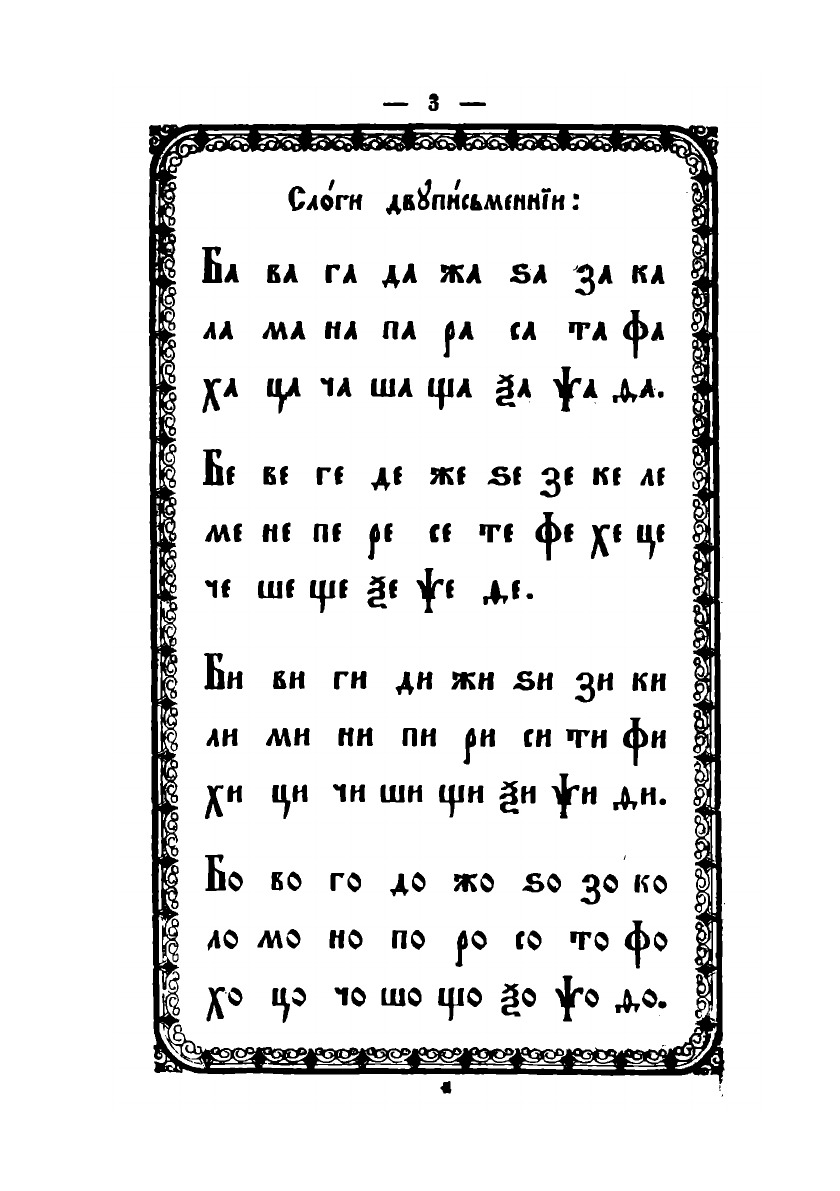 — 3 —
Сло́ги двꙋпи́сьменнїи:
Ба ва га да жа ѕа за ка
ла ма на па ра са та фа
ха ца ча ша ща ѯа ѱа ѳа.
Бе ве ге де же ѕе зе ке ле
ме не пе ре се те фе хе це
че ше ще ѯе ѱе ѳе.
Би ви ги ди жи ѕи зи ки
ли ми ни пи ри си ти фи
хи ци чи ши щи ѯи ѱи ѳи.
Бо во го до жо ѕо зо ко
ло мо но по ро со то фо
хо цо чо шо що ѯо ѱо ѳо.